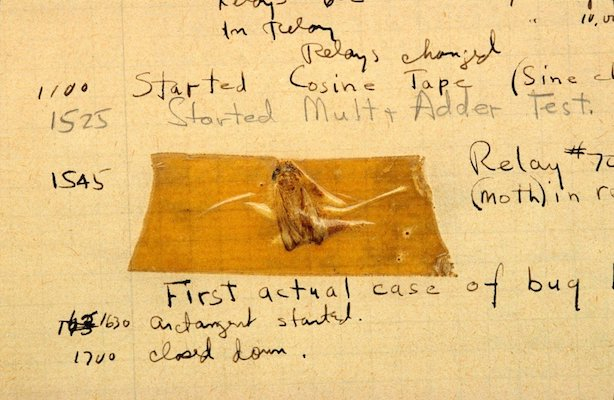 In Relay
Relays changed
1100 Started Cosine Tape (Sine
1525 Started Mult + Adder Test.
1545 Relay #70
(Moth) in
First actual case of bug
1630 arctangent started.
1700 closed down.